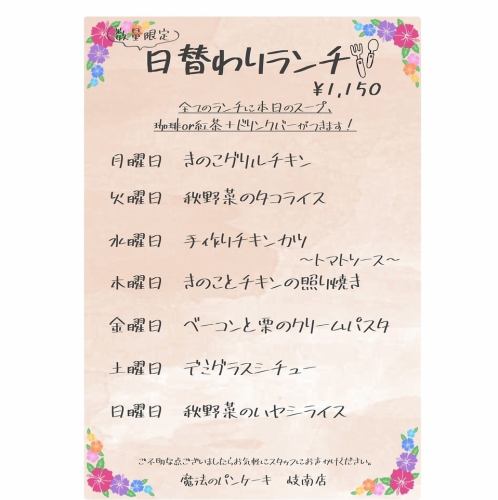 (数量限定)
日替わりランチ
¥1,150
全てのランチに本日のスープ、
珈琲or紅茶+ドリンクバーがつきます!
月曜日 きのこグリルチキン
火曜日 秋野菜のタコライス
水曜日 手作りチキンカツ
〜トマトソース〜
木曜日 きのことチキンの照り焼き
金曜日 ベーコンと栗のクリームパスタ
土曜日 デミグラスシチュー
日曜日 秋野菜のハヤシライス
ご不明な点ございましたらお気軽にスタッフにお声がけください。
魔法のパンケーキ 岐南店